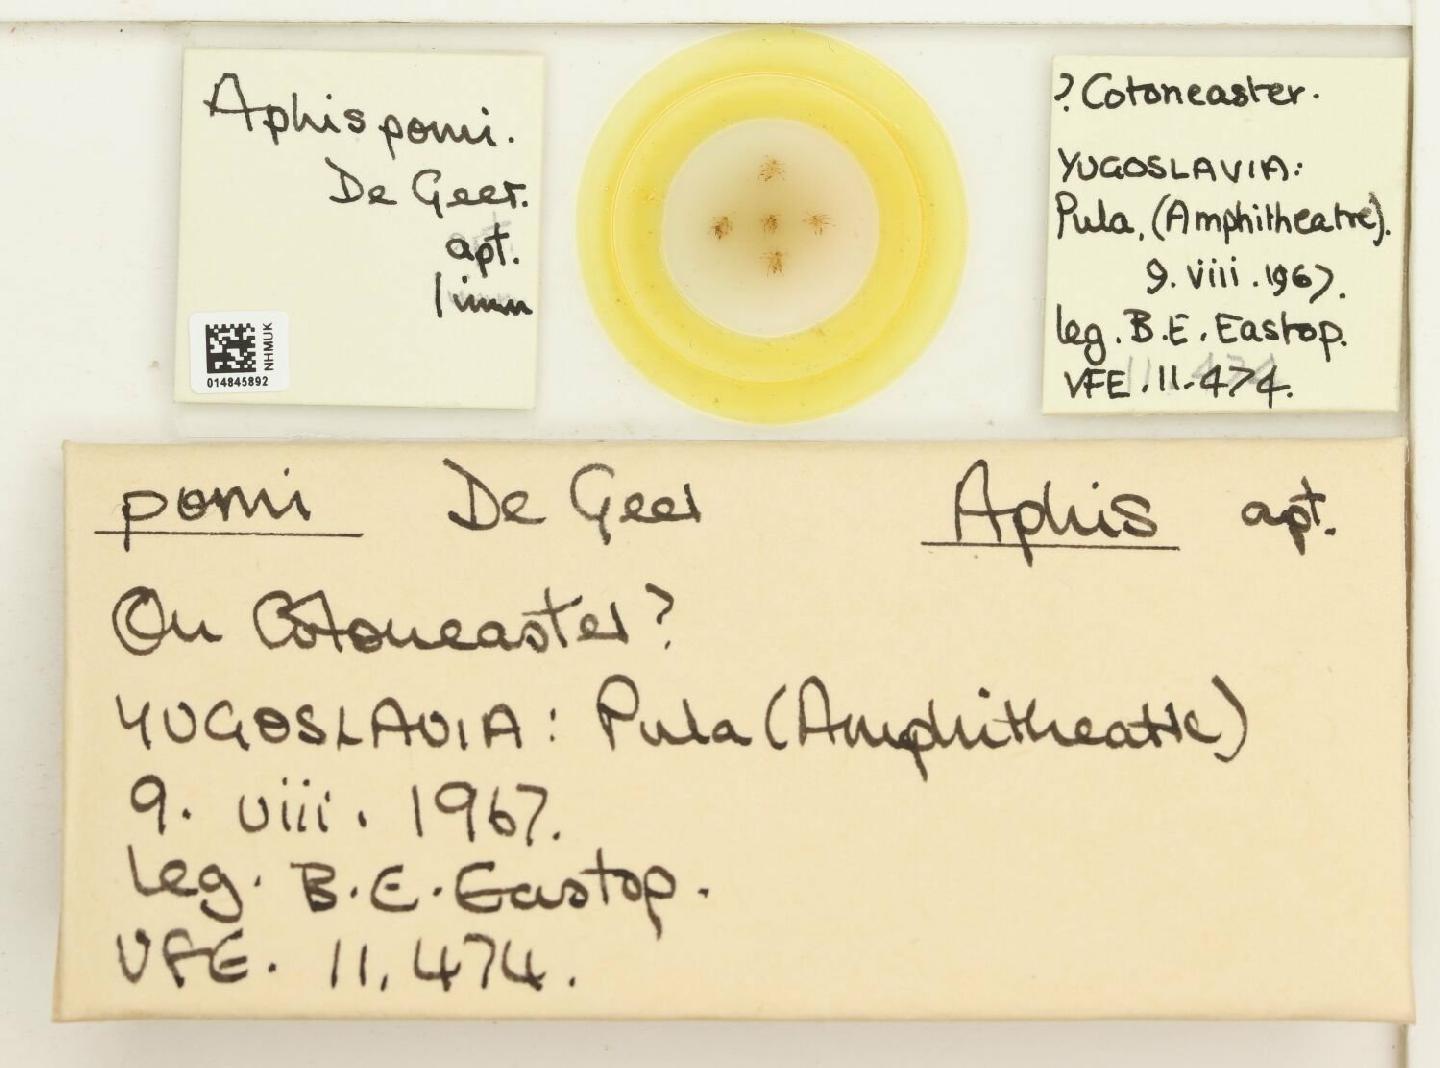 Aphis pomi.
De Geer.
apt.
1 imm
NHMUK
014845892
? Cotoneaster.
YUGOSLAVIA:
Pula, (Amphitheatre).
9. viii. 1967.
leg. B.E. Eastop.
VFE. 11.474.
pomi De Geer Aphis apt.
On Cotoneaster?
YUGOSLAVIA: Pula (Amphitheatre)
9. viii. 1967.
Leg. B.E. Eastop.
VFE. 11,474.